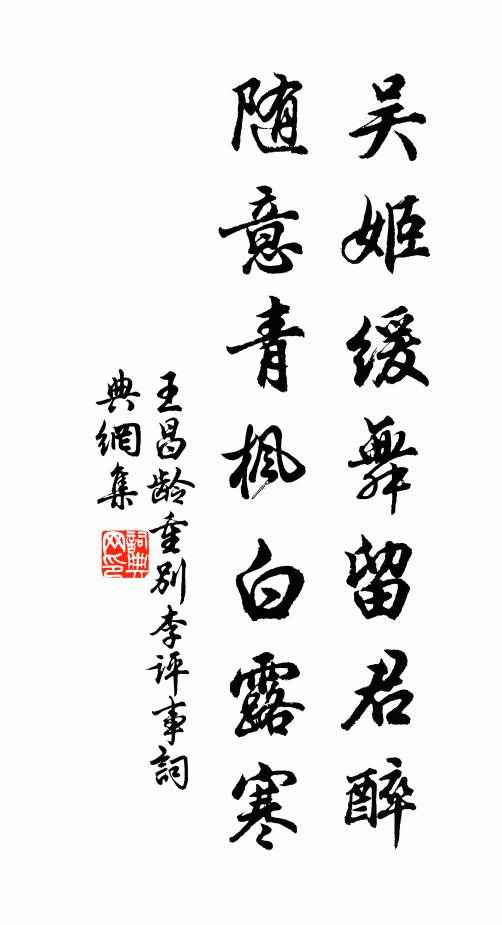 吴姬缓舞留君醉
随意青枫白露寒
王昌龄重别李评事词
典網集
詞典网印